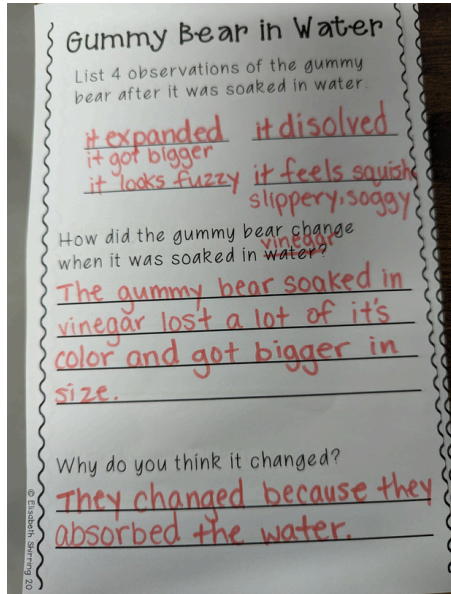 Gummy Bear in Water
List 4 observations of the gummy
bear after it was soaked in water.
it expanded it disolved
it got bigger
it looks fuzzy it feels squish
slippery, soggy
How did the gummy bear change
vinegar
when it was soaked in water?
The gummy bear soaked in
vinegar lost a lot of it's
color and got bigger in
size.
Why do you think it changed?
They changed because they
absorbed the water.
© Elisabeth Shirring 20